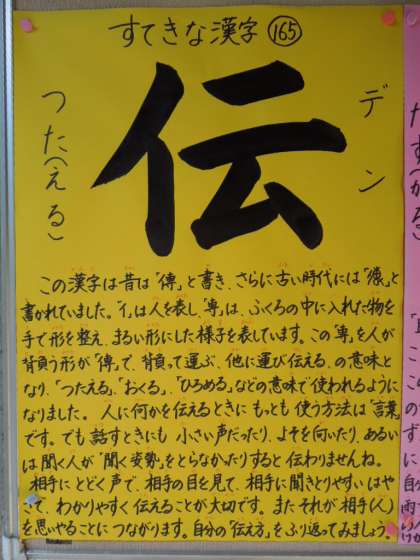 すてきな漢字 165
伝
デン
つた(える)
この漢字は昔は「傳」と書き、さらに古い時代には「」と
書かれていました。「亻」は人を表し、「専」は、ふくろの中に入れた物を
手で形を整え、まるい形にした様子を表しています。この「専」を人が
背負う形が「傳」で、背負って運ぶ、他に運び伝える、の意味と
なり、「つたえる」、「おくる」、「ひろめる」などの意味で使われるように
なりました。人に何かを伝えるときにもっとも使う方法は「言葉」
です。でも話すときにも小さい声だったり、よそを向いたり、あるい
は聞く人が「聞く姿勢」をとらなかったりすると伝わりませんね。
相手にとどく声で、相手の目を見て、相手に聞きとりやすいはや
さで、わかりやすく伝えることが大切です。またそれが相手(人)
を思いやることにつながります。自分の「伝え方」をふり返ってみましょう。